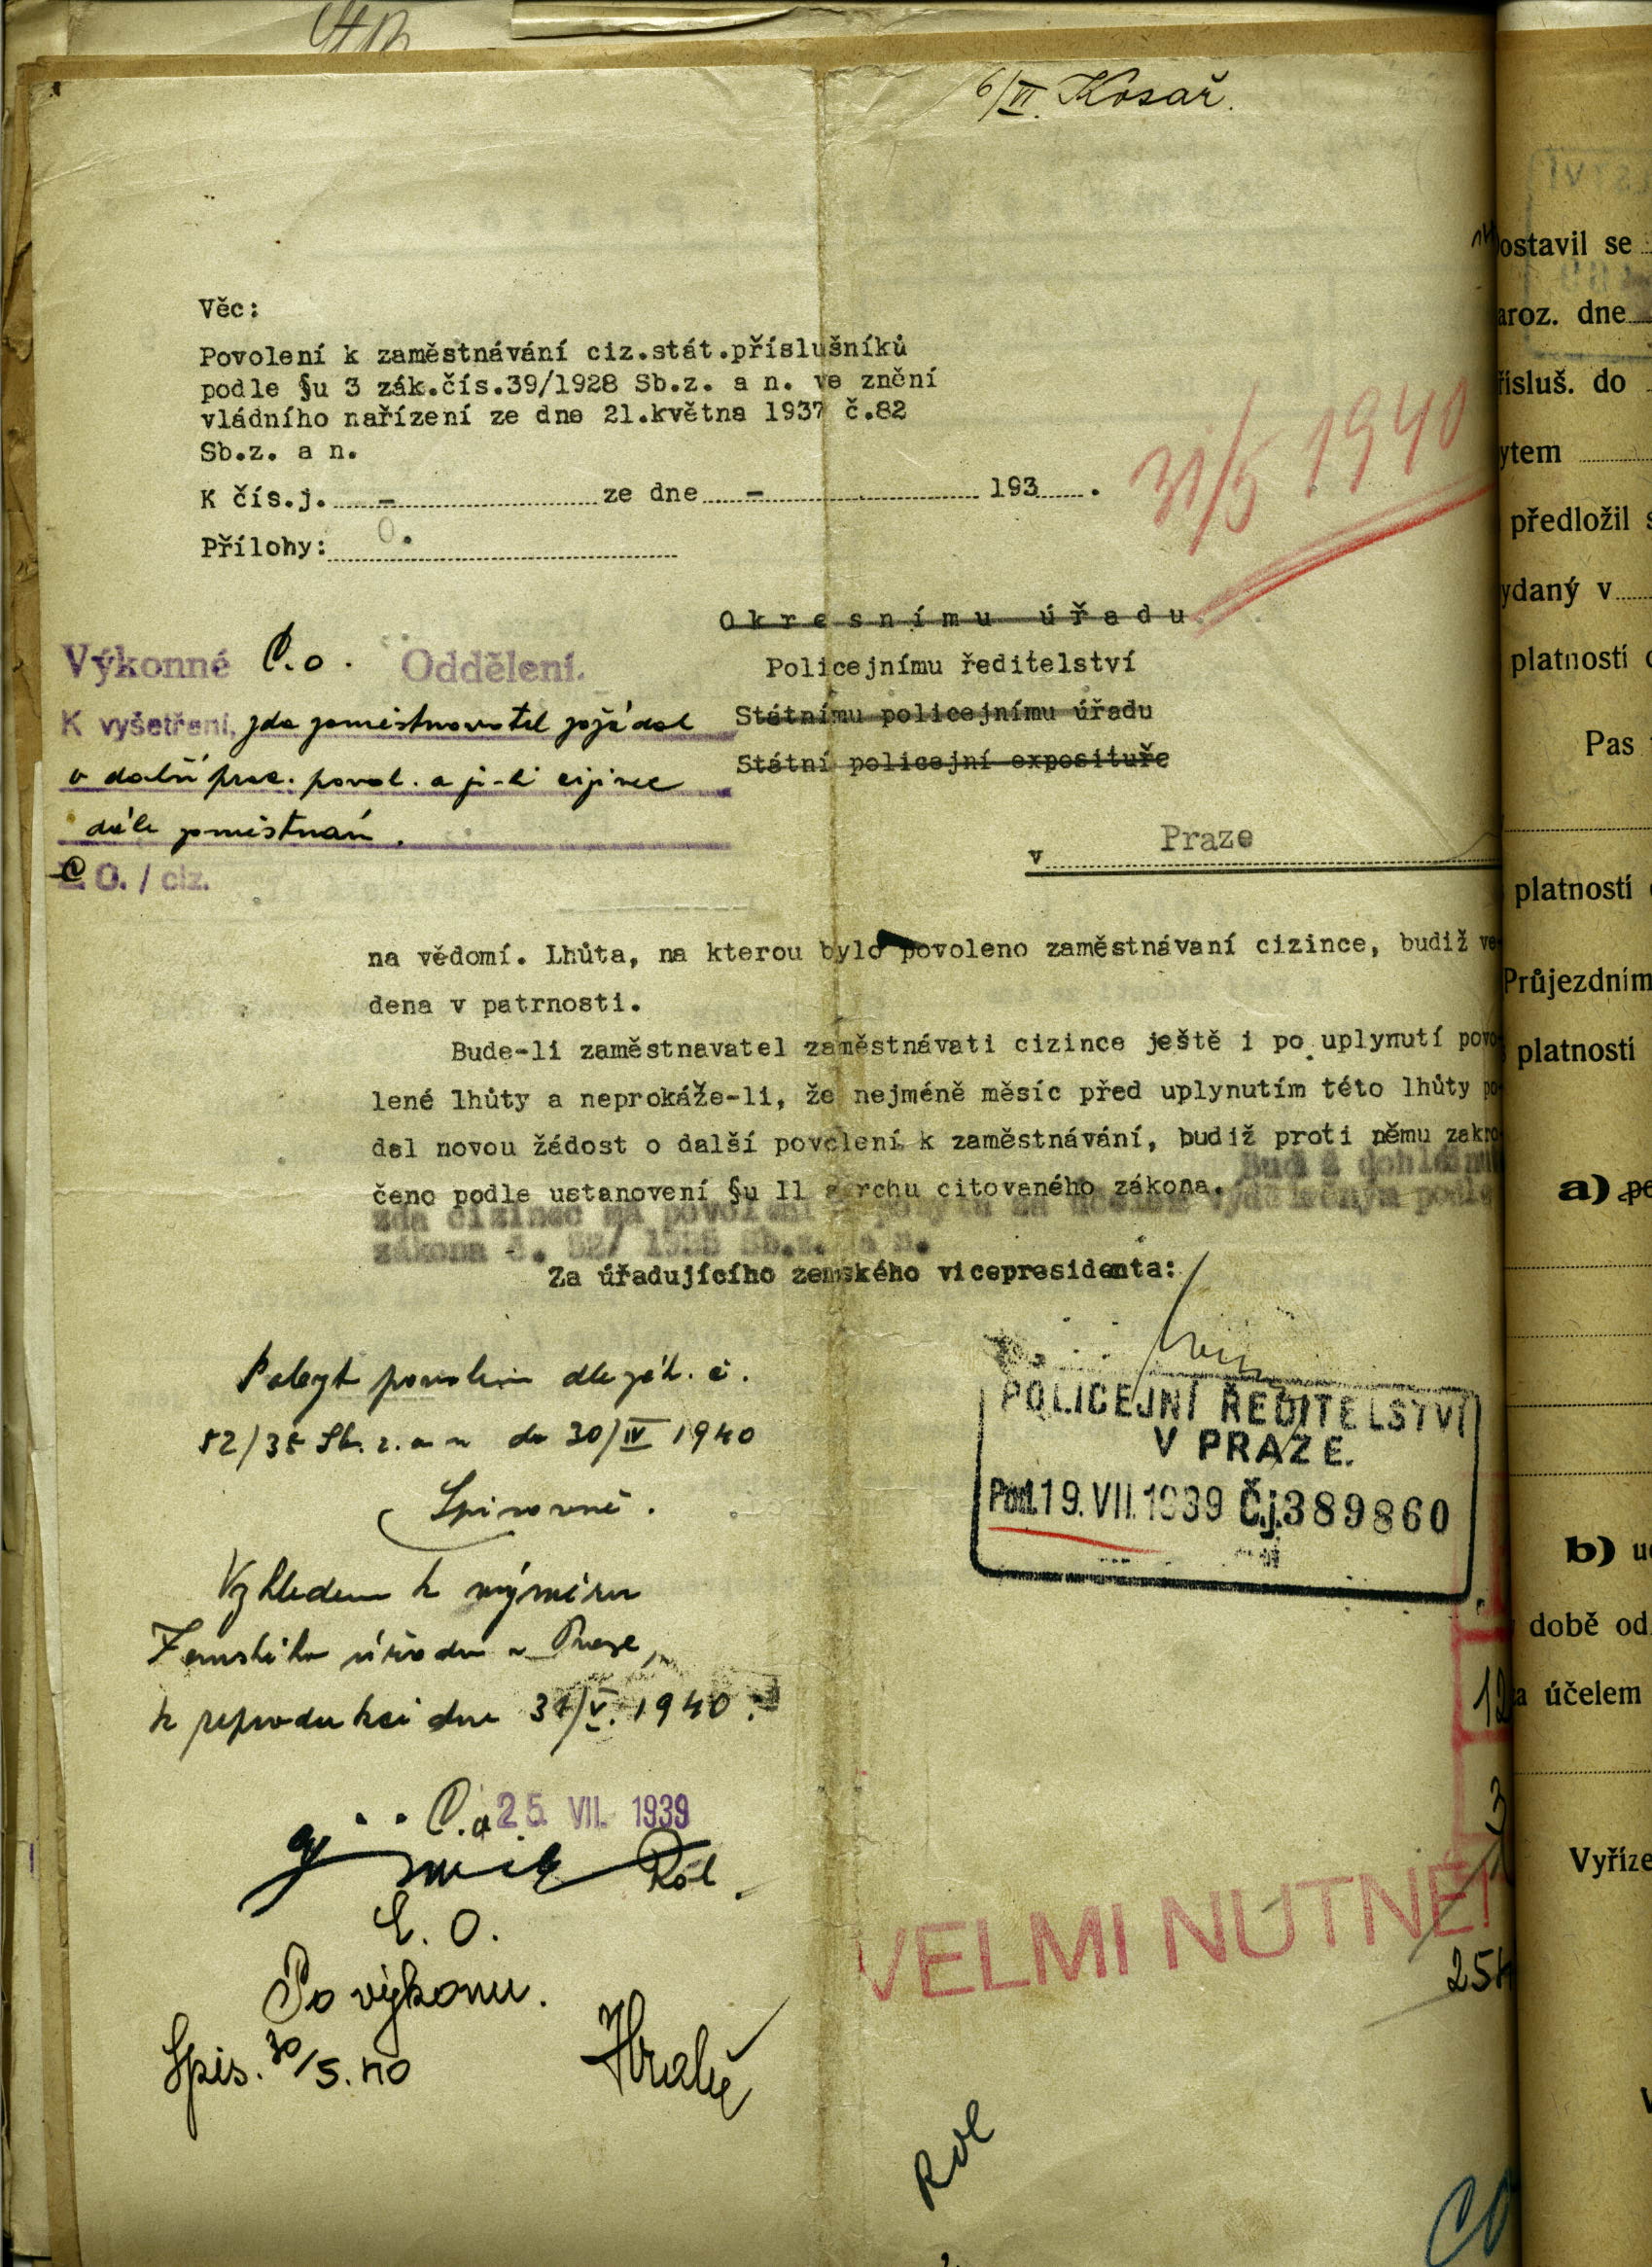 6/VI. Kosař.
Věc:
Povolení k zaměstnávání ciz.stát.příslušníků
podle §u 3 zák.čís.39/1928 Sb.z. a n. ve znění
vládního nařízení ze dne 21.května 1937 č.82
Sb.z. a n.
K čís.j. - ze dne - 193 .
31/5 1940
Přílohy: 0.
Okresnímu úřadu
Policejnímu ředitelství
Státnímu policejnímu úřadu
Státní policejní exposituře
v Praze
Výkonné C.o. Oddělení.
K vyšetření, zda zaměstnavatel požádal
o další prac. povol. a je-li cizinec
dále zaměstnán.
C.O. / ciz.
na vědomí. Lhůta, na kterou bylo povoleno zaměstnávaní cizince, budiž ve
dena v patrnosti.
Bude-li zaměstnavatel zaměstnávati cizince ještě i po uplynutí povo
lené lhůty a neprokáže-li, že nejméně měsíc před uplynutím této lhůty po
dal novou žádost o další povolení k zaměstnávání, budiž proti němu zakro
čeno podle ustanovení §u 11 svrchu citovaného zákona. Budiž dohlédnu
zda cizinec má povolení k pobytu za účelem výdělečným podle
zákona č. 52/ 1935 Sb.z. a n.
Za úřadujícího zemského vicepresidenta:
POLICEJNÍ ŘEDITELSTVÍ
V PRAZE.
Pod. 19. VII. 1939 Č.j. 389860
Pobyt povolen dle zák. č.
52/35 Sb. z. a n do 30/IV 1940
Vzhledem k výměru
Zemského úřadu v Praze,
k reprodukci dne 31/V. 1940.
C.o. 25. VII. 1939
Rol
C. O.
Po výkonu.
Spis. 30/5. 40
VELMI NUTNÉ!
Rol
ostavil se
aroz. dne
řísluš. do
ytem
předložil s
ydaný v
platností
Pas
platností
Průjezdním
platností
a) pe
b)
době od
a účelem
Vyříze